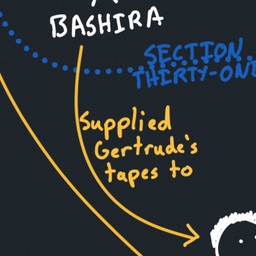 BASHIRA
SECTION
THIRTY-ONE
Supplied
Gertrude's
tapes to